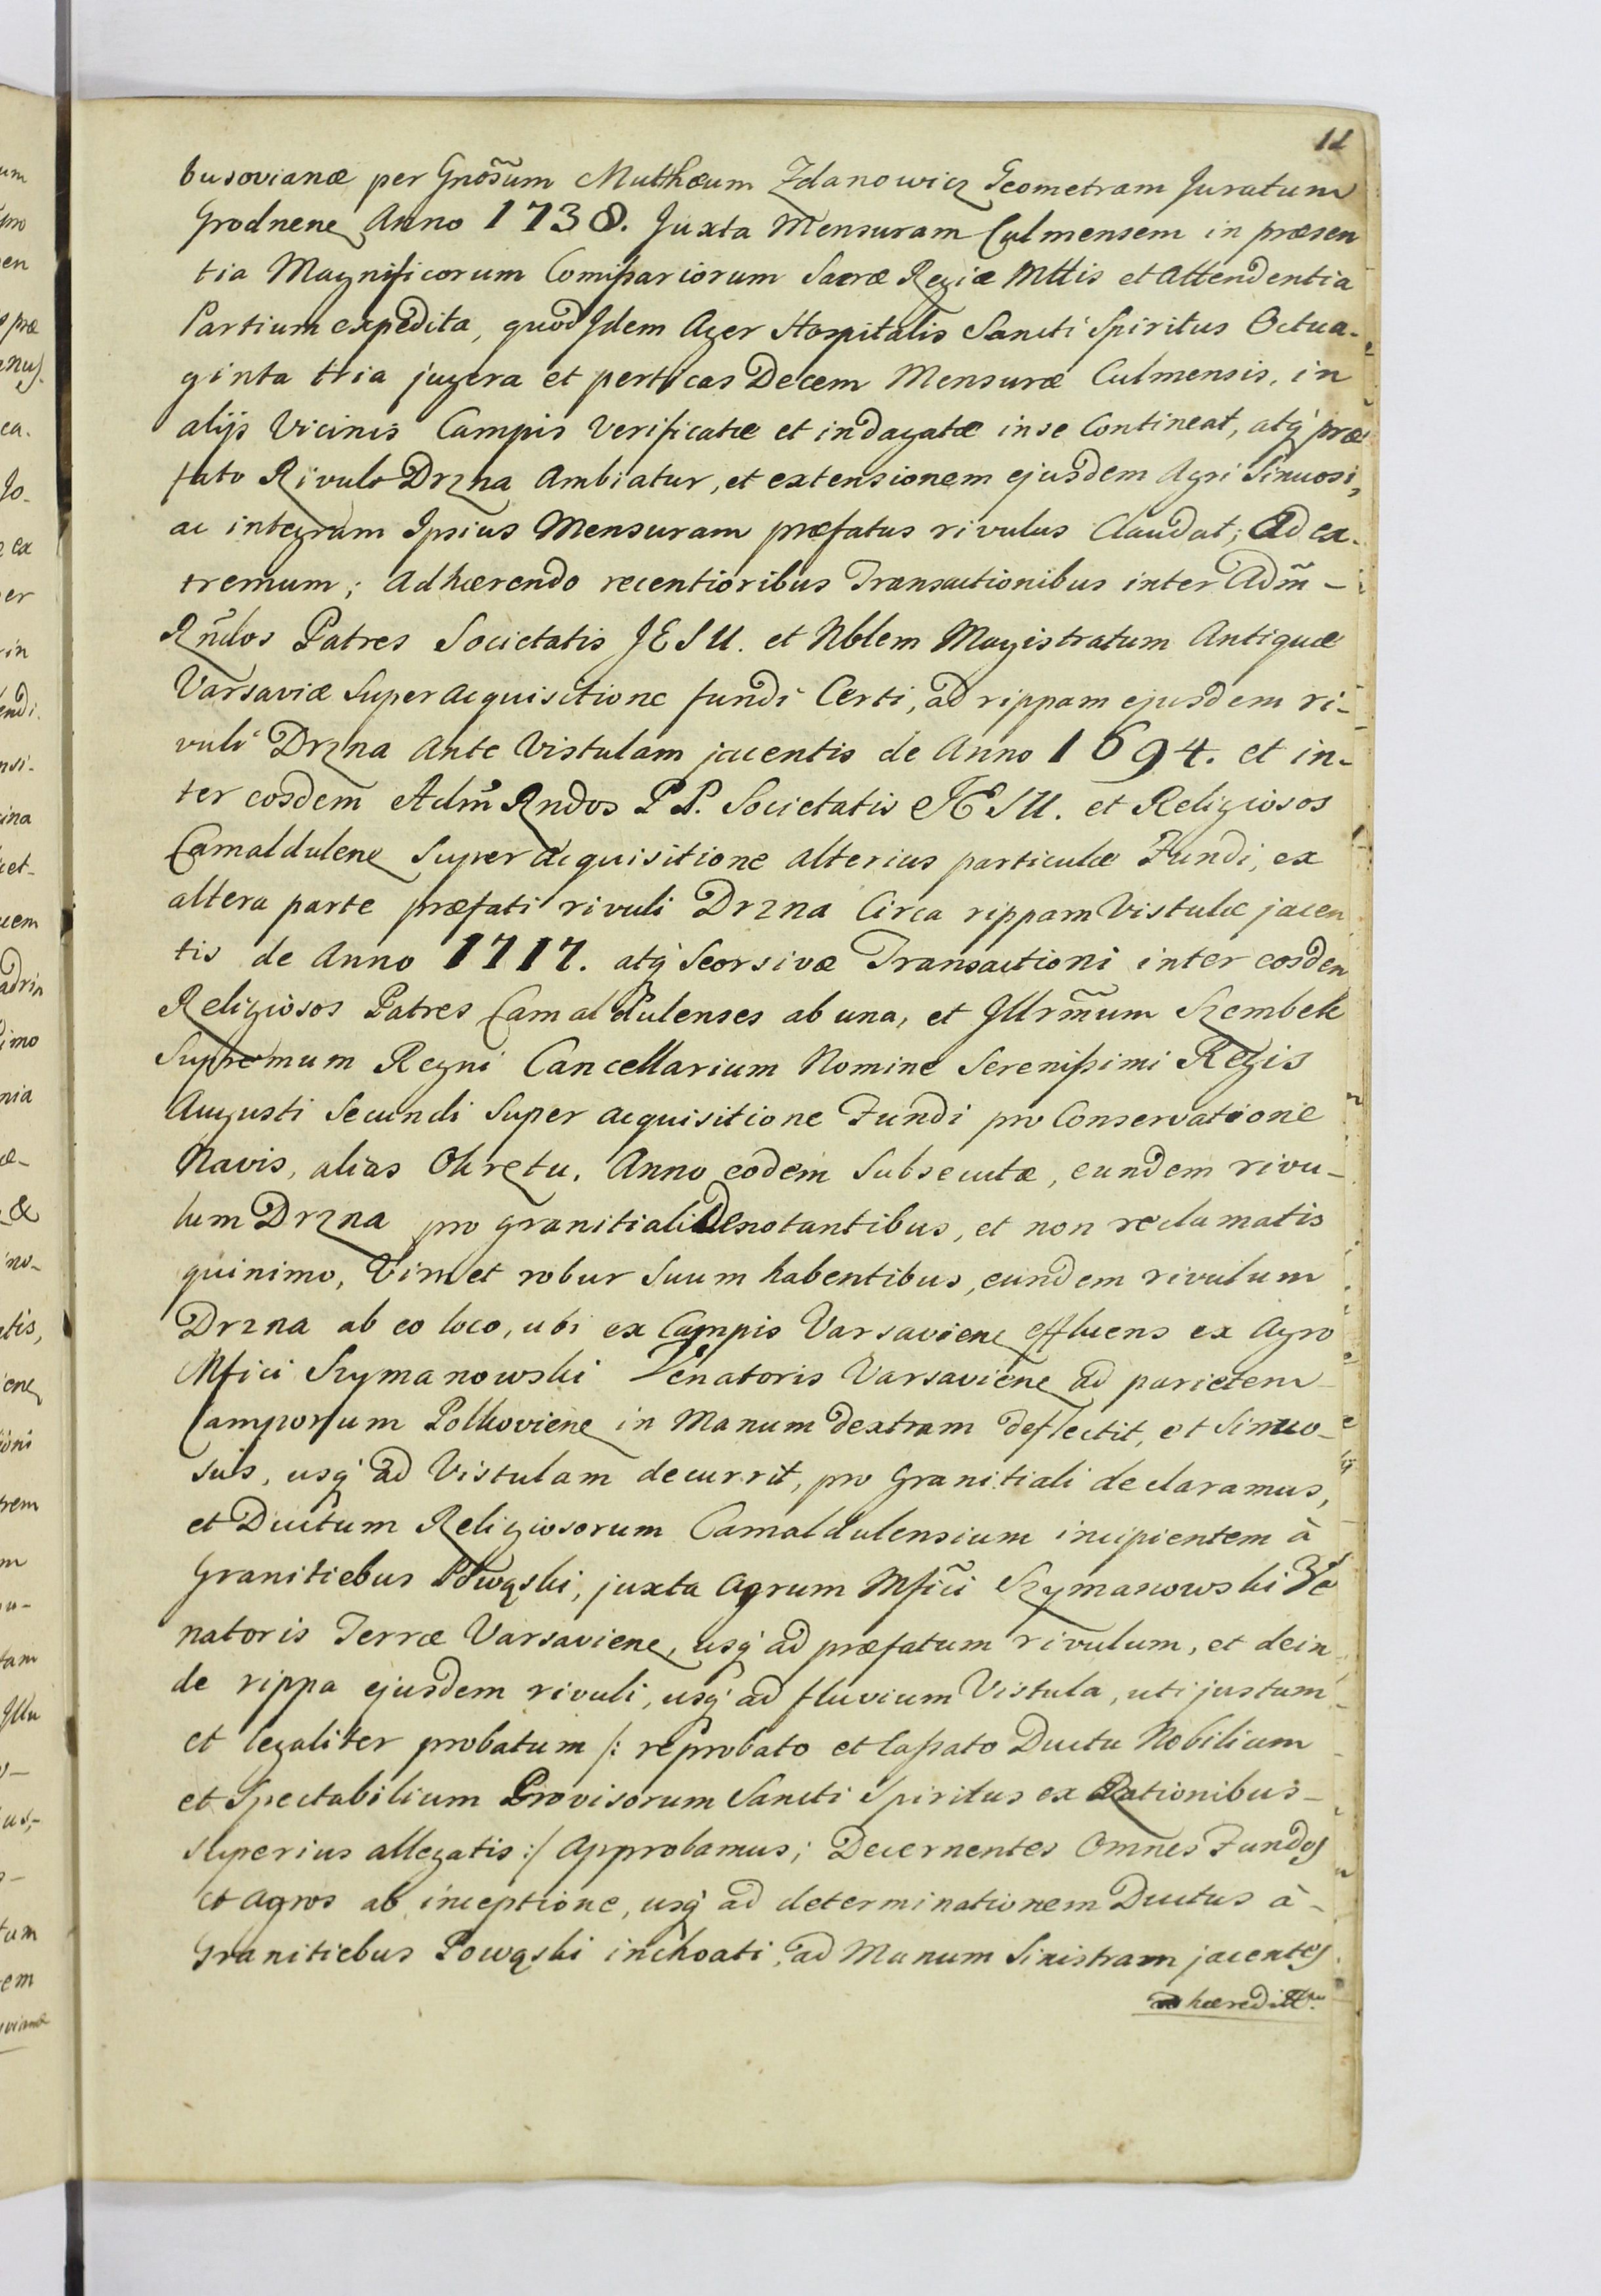 12
busovianæ per Gnõsum Matthæum Zdanowicz Geometram Juratum
Grodnen̨ Anno 1738. Juxta Mensuram Culmensem in præsen
tia Magnificorum Comißariorum Sacræ Regiæ Mttis et Attendentia
Partium expedita, quod Idem Ager Hospitalis Sancti Spiritus Octua-
ginta tria jugera et perticas Decem Mensuræ Culmensis, in
alijs Vicinis Campis Verificatæ et indagatæ in se Contineat, atq́ præ
fato Rivulo Drzna Ambiatur, et extensionem ejusdem Agri Sinuosi,
ac integram Ipsius Mensuram præfatus rivulus Claudat; Ad ex-
tremum; Adhærendo recentioribus Transactionibus inter Adm̃-
Rñdos Patres Societatis JESU. et Nblem Magistratum Antiquæ
Varsaviæ Super Acquisitione fundi Certi, ad rippam ejusdem ri-
vuli Drzna Ante Vistulam jacentis de Anno 1694. et in-
ter eosdem Adm̃ Rndos PP. Societatis JESU. et Religiosos
Camaldulen̨ Super Acquisitione alterius particulæ Fundi, ex
altera parte præfati rivuli Drzna Circa rippam Vistulæ jacen
tis de Anno 1717. atq́ Seorsivæ Transactioni inter eosdem
Religiosos Patres Camaldulenses ab una, et Illrm̃um Szembek
Supremum Regni Cancellarium Nomine Serenißimi Regis
Augusti Secundi Super acquisitione Fundi pro Conservatione
Navis, alias Okrętu, Anno eodem Subsecutæ, eundem rivu-
lum Drzna pro granitiali Denotantibus, et non reclamatis
quinimo, Vim et robur Suum habentibus, eundem rivulum
Drzna ab eo loco, ubi ex Campis Varsavien̨ effluens ex Agro
Mfici Szymanowski Venatoris Varsavien̨ ad parietem
Camporum Polkovien̨ in Manum dextram deflectit, et Sinuo-
sus, usq́ ad Vistulam decurrit, pro Granitiali declaramus,
et Ductum Religiosorum Camaldulensium incipientem à
Granitiebus Powąski, juxta Agrum Mfici Szymanowski Ve
natoris Terræ Varsavien̨, usq́ ad præfatum rivulum, et dein
de rippa ejusdem rivuli, usq́ ad fluvium Vistula, uti justum
et legaliter probatum /: reprobato et Caßato Ductu Nobilium
et Spectabilium Provisorum Sancti Spiritus ex Rationibus-
superius allegatis :/ Approbamus; Decernentes Omnes Fundos
et Agros ab inceptione, usq́ ad determinationem Ductus à-
Granitiebus Powąski inchoati, ad Manum Sinistram jacentes